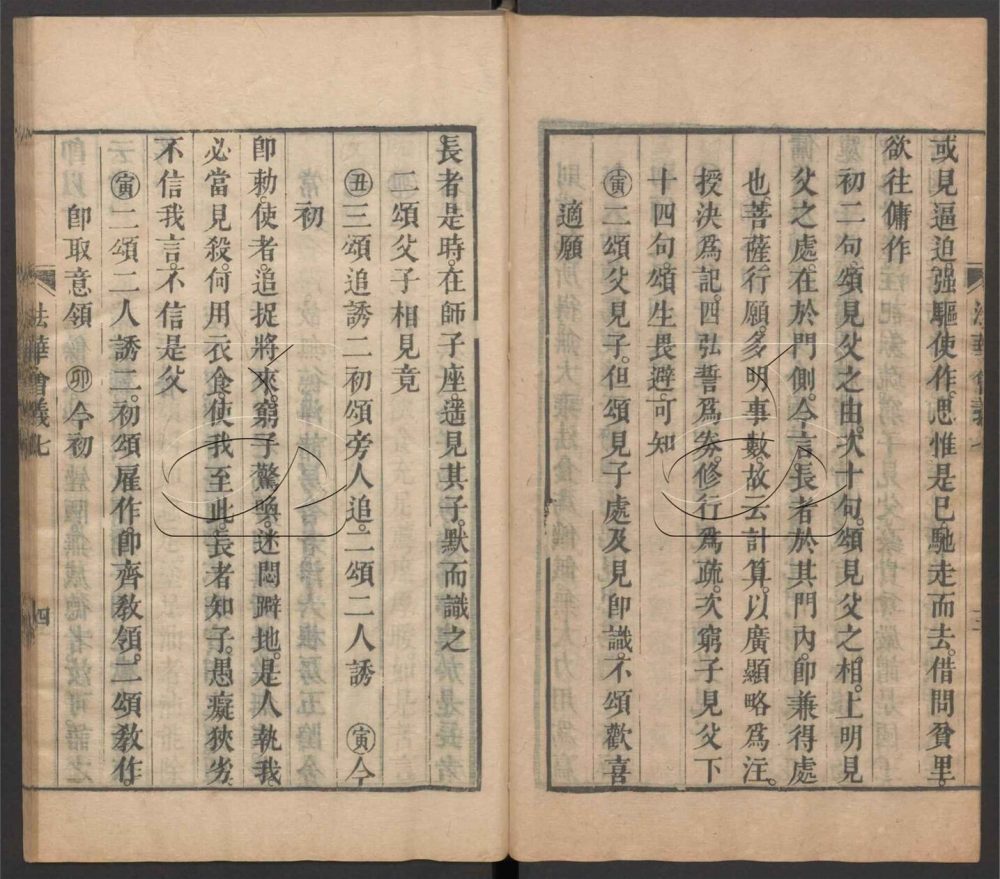 或見逼迫。强驅使作。思惟是已。馳走而去。借問貧里。
欲往傭作
初二句。頌見父之由。次十句。頌見父之相。上明見
父之處。在於門側。今言長者於其門內。卽兼得處
也。菩薩行願。多明事數。故云計算。以廣顯略爲注。
授決爲記。四弘誓爲券。修行爲疏。次窮子見父下
十四句。頌生畏避。可知
㊢二頌父見子。但頌見子處及見卽識。不頌歡喜
適願
長者是時。在師子座。遥見其子。默而識之
二頌父子相見竟
㊄三頌追誘二初頌旁人追。二頌二人誘 ㊢今
初
卽勅使者。追捉將來。窮子驚喚。迷悶躃地。是人執我。
必當見殺。何用衣食。使我至此。長者知子。愚癡狹劣。
不信我言。不信是父
㊢二頌二人誘二。初頌雇作。卽齊敎領。二頌敎作。
卽取意領 ㊞今初
法華會義七
四